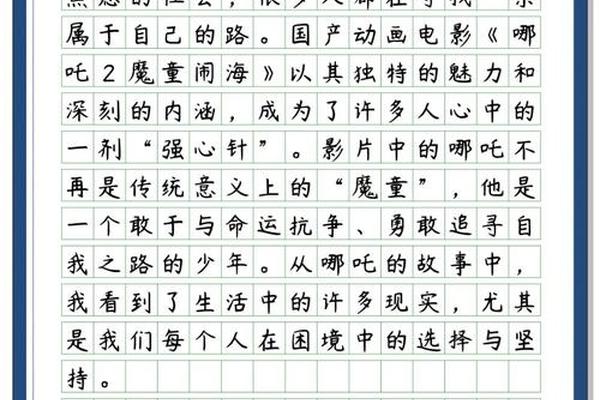 属于自己的路。国产动画电影《哪
吒2魔童闹海》以其独特的魅力和
深刻的内涵，成为了许多人心中的
一剂“强心针”。影片中的哪吒不
再是传统意义上的“魔童”，他是
一个敢于与命运抗争、勇敢追寻自
我之路的少年。从哪吒的故事中，
我看到了生活中的许多现实，尤其
是我们每个人在困境中的选择与坚
持。